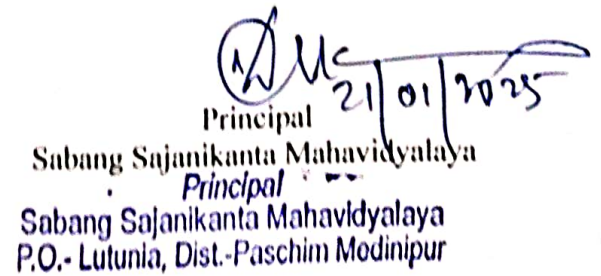 21/01/2025
Principal
Sabang Sajanikanta Mahavidyalaya
Principal
Sabang Sajanikanta Mahavidyalaya
P.O.- Lutunia, Dist.-Paschim Modinipur